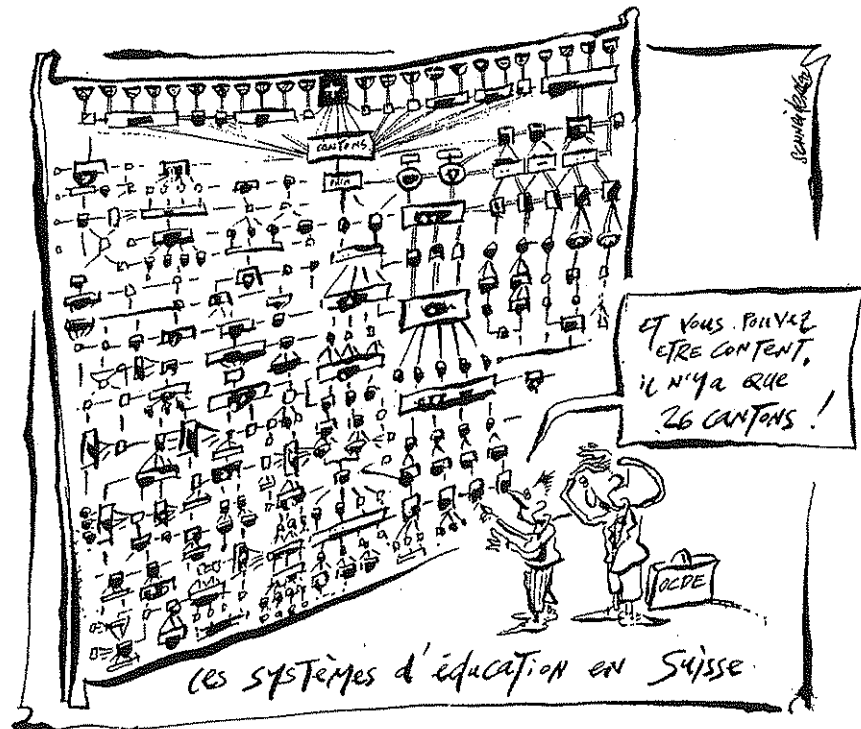 CANTONS
ET VOUS POUVEZ
ETRE CONTENT,
iL N'Y A QUE
26 CANTONS !
OCDE
Les systèmes d'éducation en Suisse